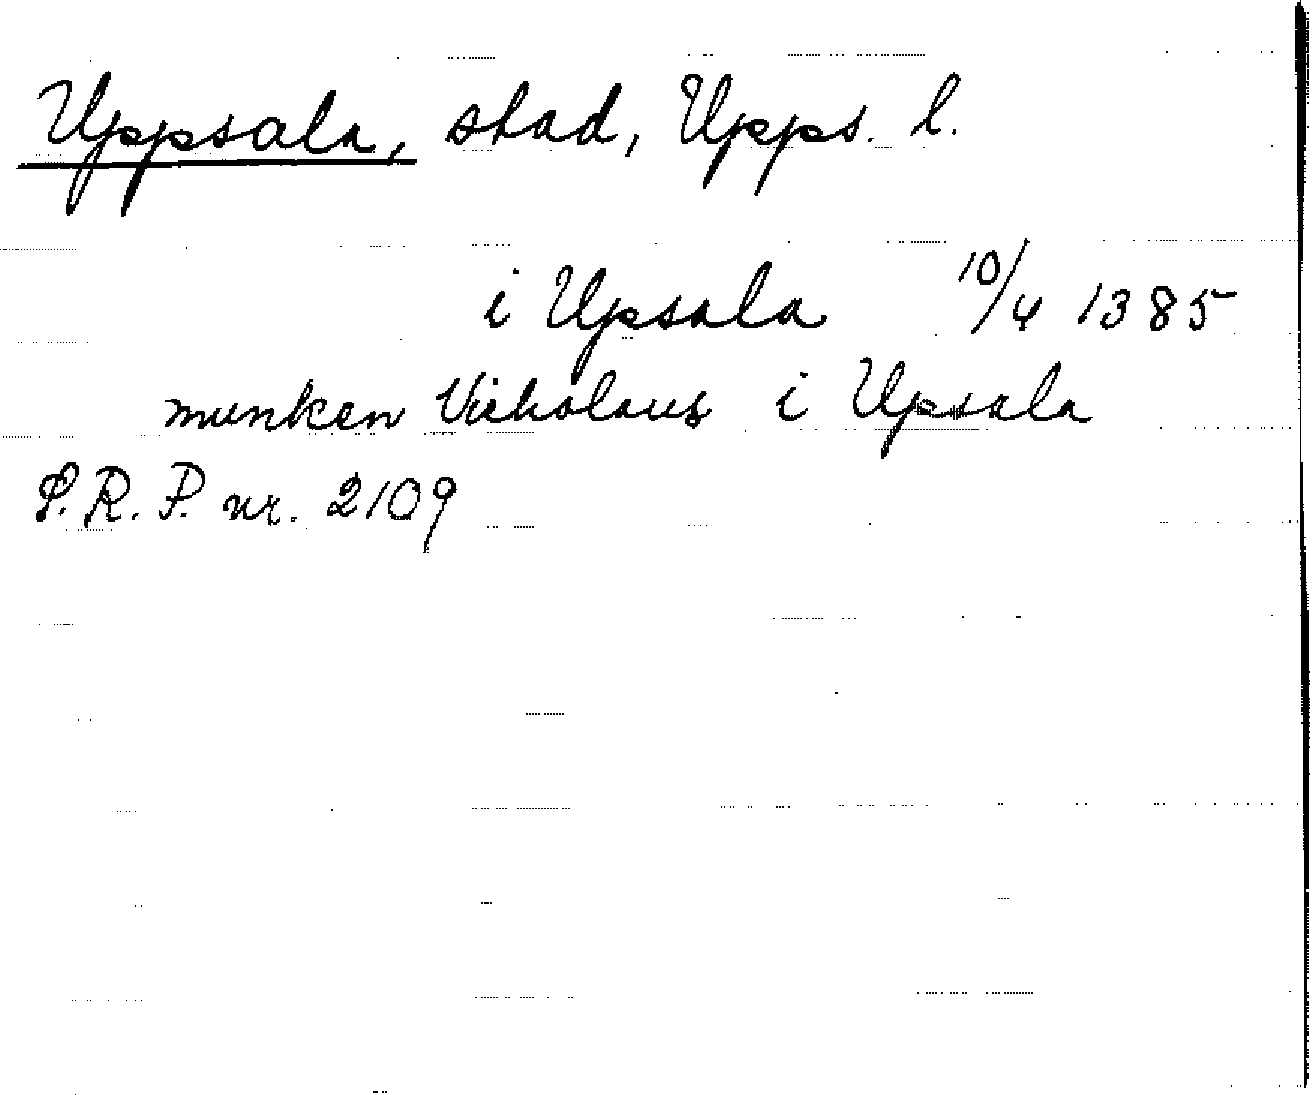 Uppsala, stad, Upps. l.
i Upsala 10/4 1385
munken Nicholaus i Upsala
S.R.P. nr. 2109